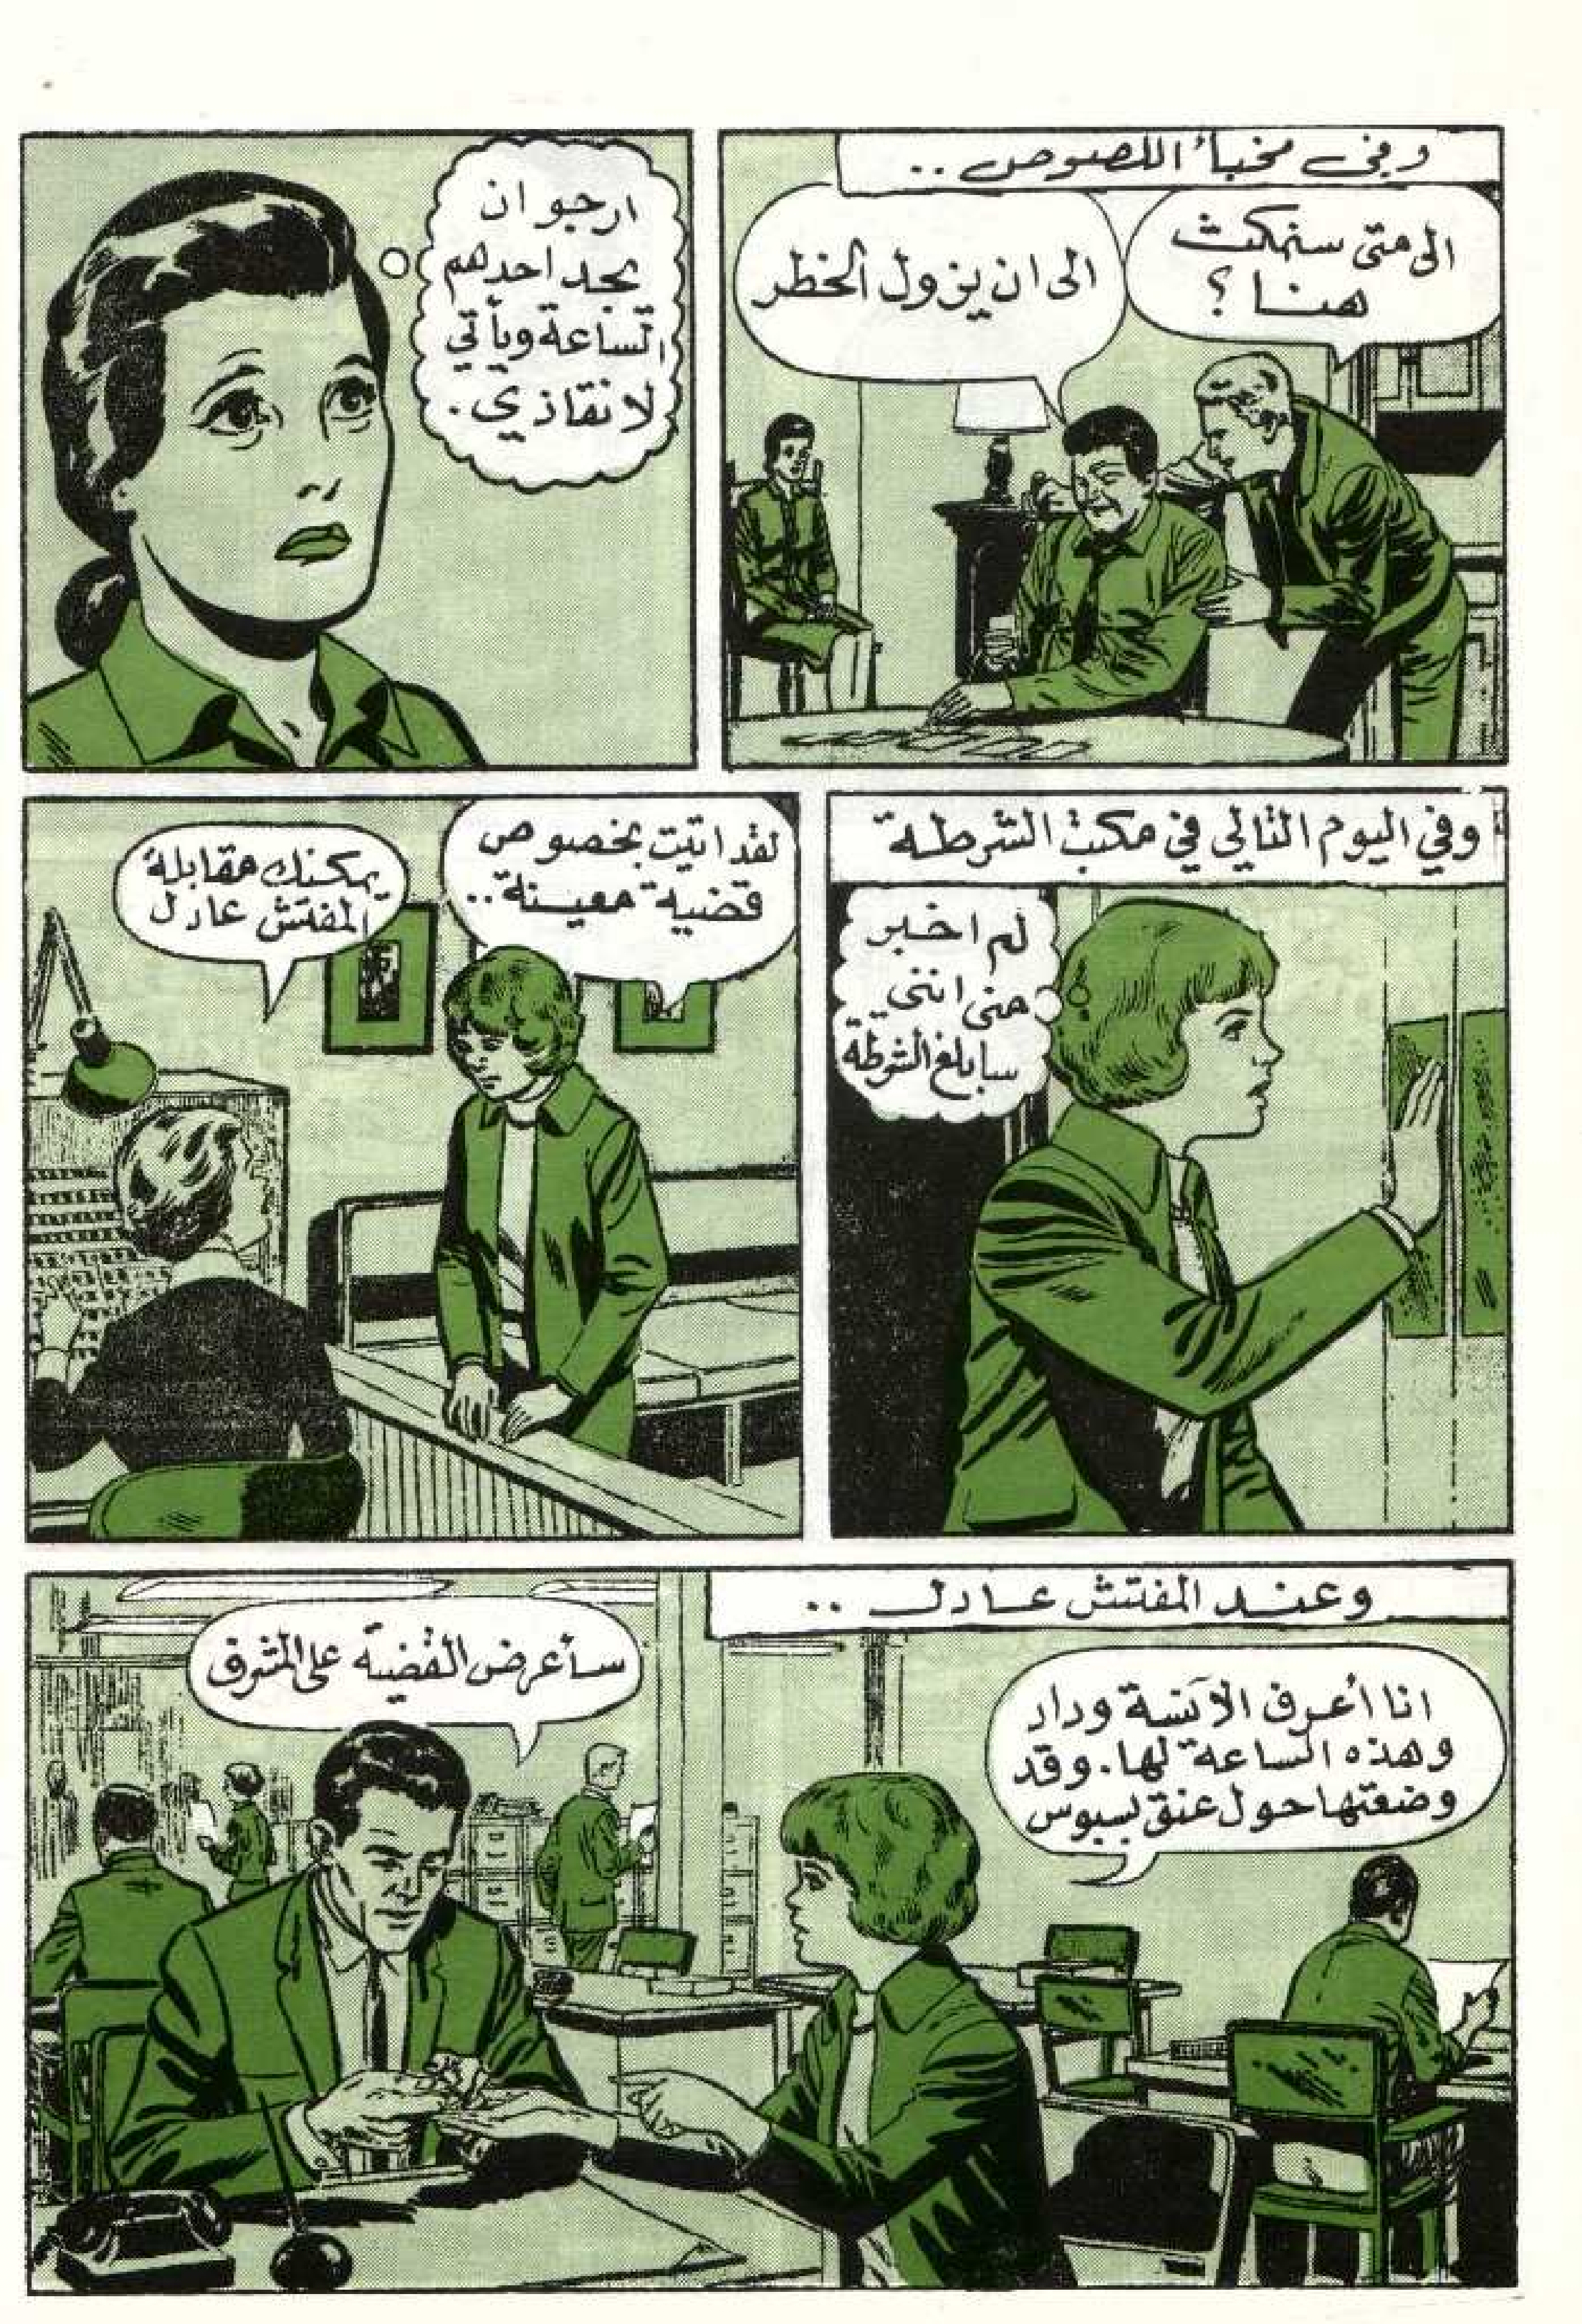 وفي مخبأ اللصوص ..
الى متى سنمكث
هنا ؟
الى ان يزول الخطر
ارجو ان
يجد احدهم
الساعة ويأتي
لانقاذي .
وفي اليوم التالي في مكتب الشرطة
لم اخبر
منى انني
سابلغ الشرطة
لقد اتيت بخصوص
قضية معينة ..
يمكنك مقابلة
المفتش عادل
وعند المفتش عادل ..
انا أعرف الآنسة وداد
وهذه الساعة لها . وقد
وضعتها حول عنق بسبوس
سأعرض القضية على المشرف